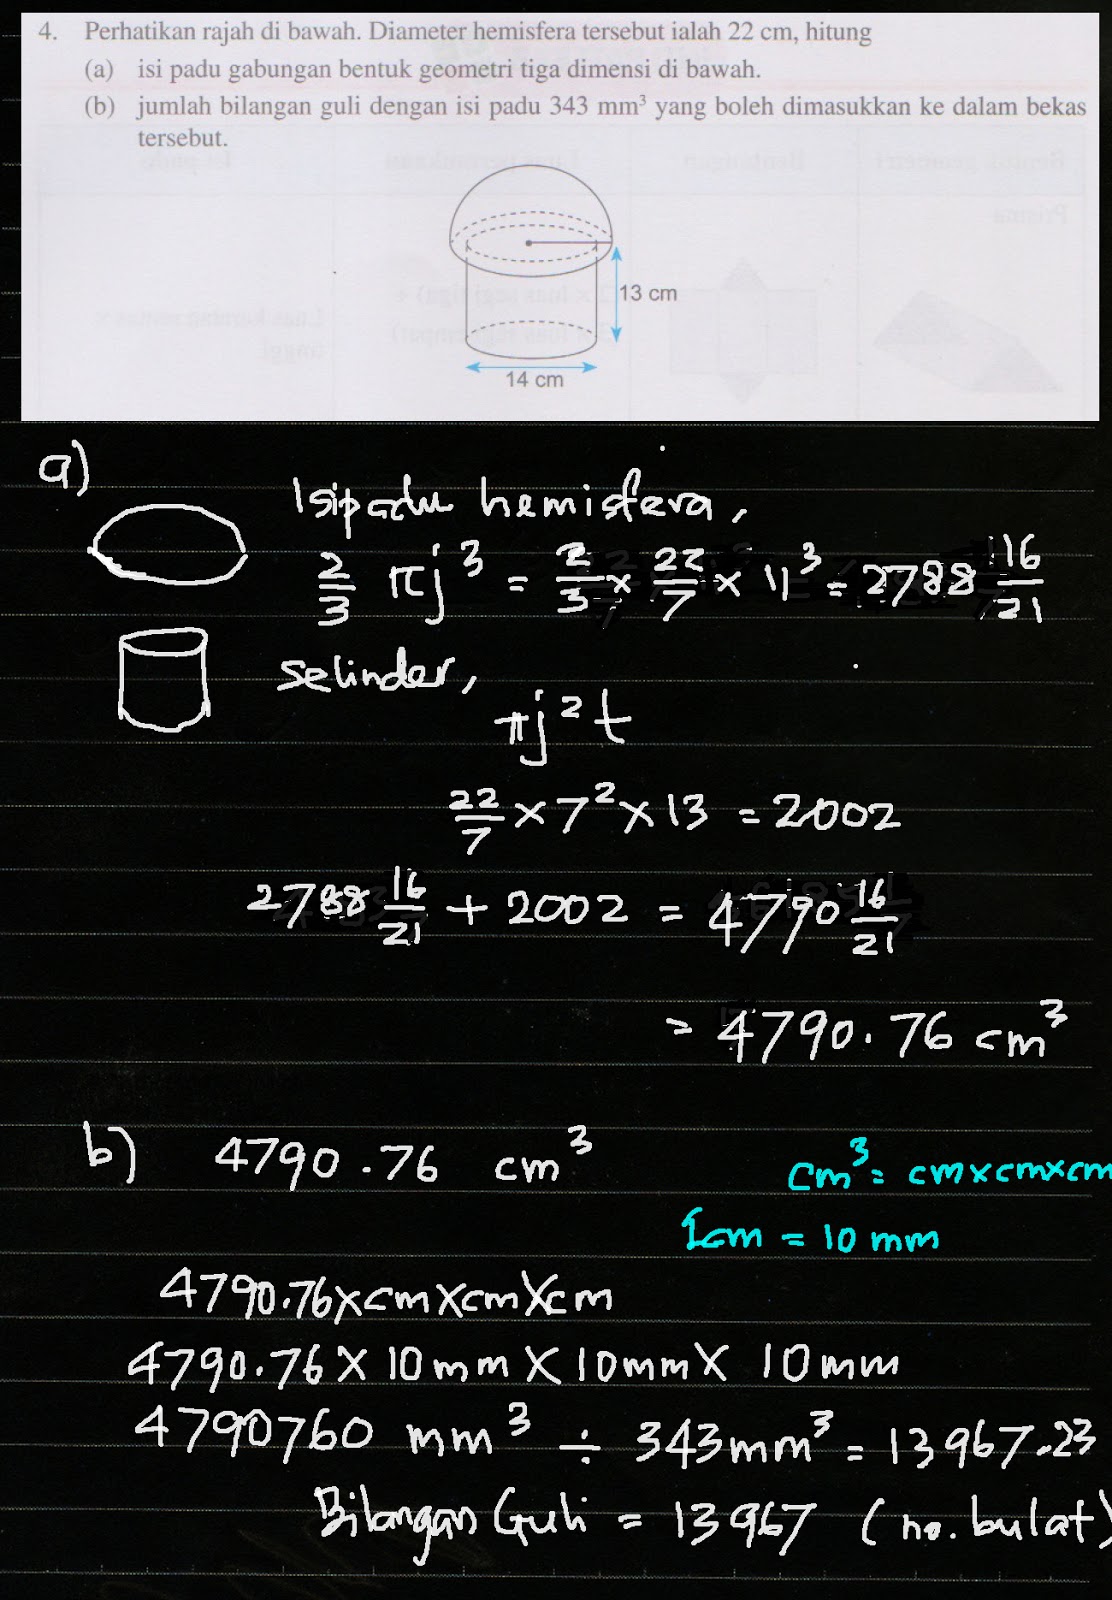 4. Perhatikan rajah di bawah. Diameter hemisfera tersebut ialah 22 cm, hitung
(a) isi padu gabungan bentuk geometri tiga dimensi di bawah.
(b) jumlah bilangan guli dengan isi padu 343 mm³ yang boleh dimasukkan ke dalam bekas
tersebut.
13 cm
14 cm
a)
Isipadu hemisfera,
2/3 πj³ = 2/3 × 22/7 × 11³ = 2788 16/21
selinder,
πj²t
22/7 × 7² × 13 = 2002
2788 16/21 + 2002 = 4790 16/21
= 4790.76 cm³
b) 4790.76 cm³
cm³ = cm×cm×cm
1cm = 10 mm
4790.76×cm×cm×cm
4790.76 × 10mm × 10mm × 10mm
4790760 mm³ ÷ 343mm³ = 13967.23
Bilangan Guli = 13967 (no. bulat)